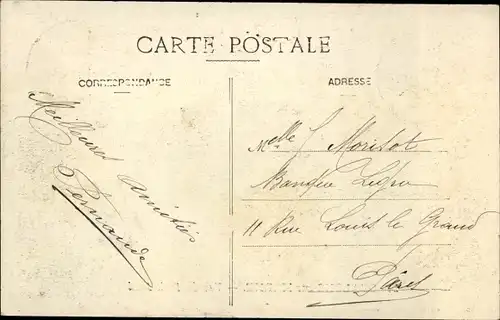 CARTE POSTALE
CORRESPONDANCE
Meilleures
amitiés
Fernande
ADRESSE
Melle J Morisot
11 Rue Louis le Grand
Paris